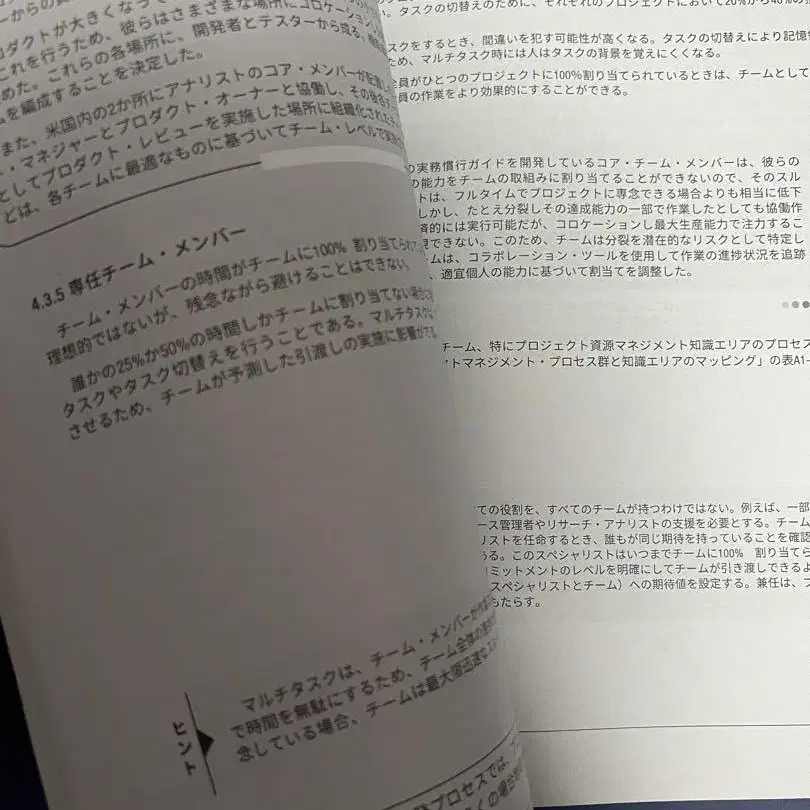 ーからの
ロダクトが大きくなって
これを行うため、彼らはさまざまな場所にコロケーション
めた。これらの各場所に、開発者とテスターから成る、機能
ムを編成することを決定した。
また、米国内の2か所にアナリストのコア・メンバーが配置
・マネジャーとプロダクト・オーナーと協働し、その後各
としてプロダクト・レビューを実施した場所に組織化された
どは、各チームに最適なものに基づいてチーム・レベルで実施
4.3.5 専任チーム・メンバー
チーム・メンバーの時間がチームに100% 割り当てられて
理想的ではないが、残念ながら避けることはできない。
誰かの25%か50%の時間しかチームに割り当てない場合
タスクやタスク切替えを行うことである。マルチタスク
させるため、チームが予測した引渡しの実施に影響が
ヒント
マルチタスクは、チーム・メンバーが
で時間を無駄にするため、チーム全体の
念している場合、チームは最大限迅速な
プロセスでは、
くの場合
い。タスクの切替えのために、それぞれのプロジェクトにおいて20%から40%の
スクをするとき、間違いを犯す可能性が高くなる。タスクの切替えにより記憶
ため、マルチタスク時には人はタスクの背景を覚えにくくなる。
全員がひとつのプロジェクトに100%割り当てられているときは、チームとして
員の作業をより効果的にすることができる。
の実務慣行ガイドを開発しているコア・チーム・メンバーは、彼らの
の能力をチームの取組みに割り当てることができないので、そのスル
トは、フルタイムでプロジェクトに専念できる場合よりも相当に低下
しかし、たとえ分裂しその達成能力の一部で作業したとしても協働作
済的には実行可能だが、コロケーションし最大生産能力で注力するこ
現できない。このため、チームは分裂を潜在的なリスクとして特定し
ームは、コラボレーション・ツールを使用して作業の進捗状況を追跡
、適宜個人の能力に基づいて割当てを調整した。
チーム、特にプロジェクト資源マネジメント知識エリアのプロセス
トマネジメント・プロセス群と知識エリアのマッピング」の表A1-
ての役割を、すべてのチームが持つわけではない。例えば、一部
ース管理者やリサーチ・アナリストの支援を必要とする。チーム
リストを任命するとき、誰もが同じ期待を持っていることを確認
ある。このスペシャリストはいつまでチームに100% 割り当てら
ミットメントのレベルを明確にしてチームが引き渡しできるよ
(スペシャリストとチーム)への期待値を設定する。兼任は、プ
もたらす。